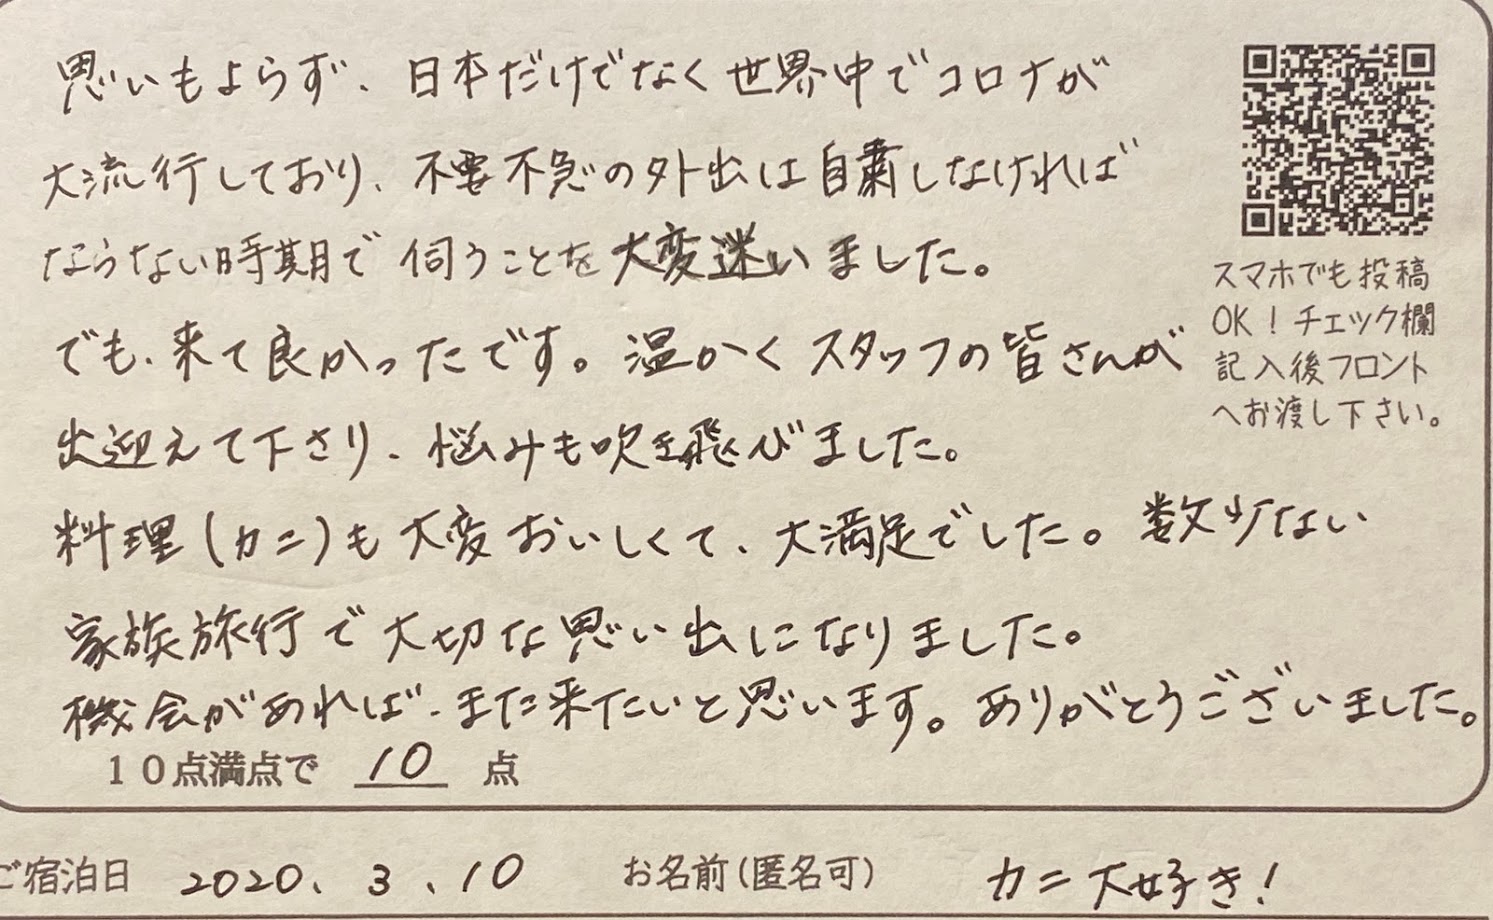 思いもよらず、日本だけでなく世界中でコロナが
大流行しており、不要不急の外出は自粛しなければ
ならない時期で伺うことを大変迷いました。
でも、来て良かったです。温かくスタッフの皆さんが
出迎えて下さり、悩みも吹き飛びました。
料理(カニ)も大変おいしくて、大満足でした。数少ない
家族旅行で大切な思い出になりました。
機会があれば、また来たいと思います。ありがとうございました。
スマホでも投稿
OK！チェック欄
記入後フロント
へお渡し下さい。
１０点満点で 10 点
ご宿泊日 2020.3.10 お名前(匿名可) カニ大好き!